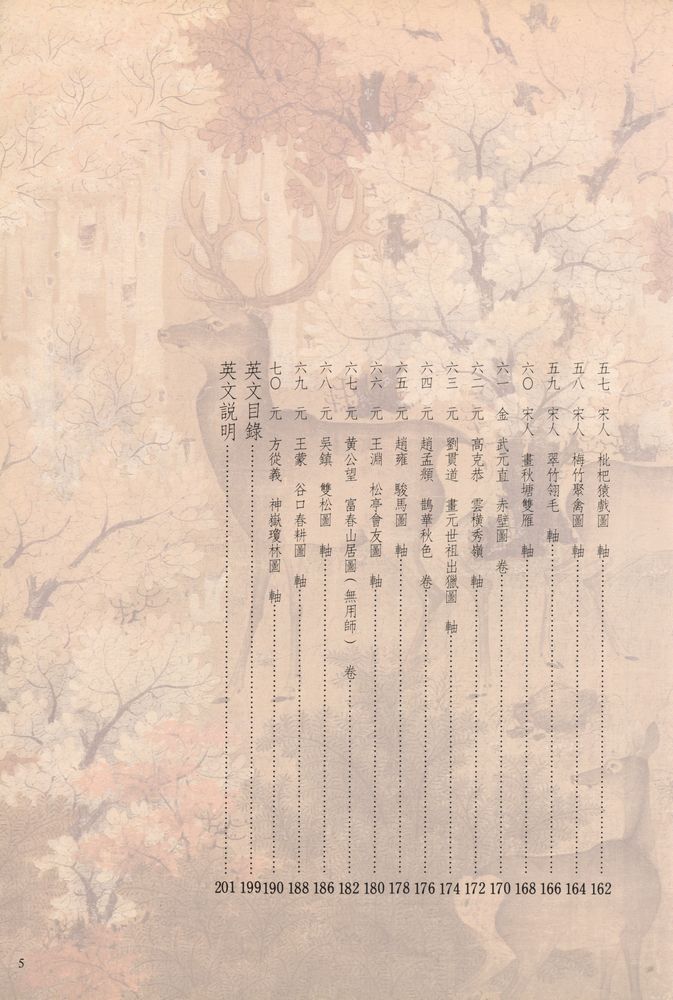 五七 宋人 枇杷猿戲圖 軸 162
五八 宋人 梅竹聚禽圖 軸 164
五九 宋人 翠竹翎毛 軸 166
六〇 宋人 畫秋塘雙雁 軸 168
六一 金 武元直 赤壁圖 卷 170
六二 元 高克恭 雲橫秀嶺 軸 172
六三 元 劉貫道 畫元世祖出獵圖 軸 174
六四 元 趙孟頫 鵲華秋色 卷 176
六五 元 趙雍 駿馬圖 軸 178
六六 元 王淵 松亭會友圖 軸 180
六七 元 黃公望 富春山居圖(無用師) 卷 182
六八 元 吳鎮 雙松圖 軸 186
六九 元 王蒙 谷口春耕圖 軸 188
七〇 元 方從義 神嶽瓊林圖 軸 190
英文目錄 199
英文說明 201
5